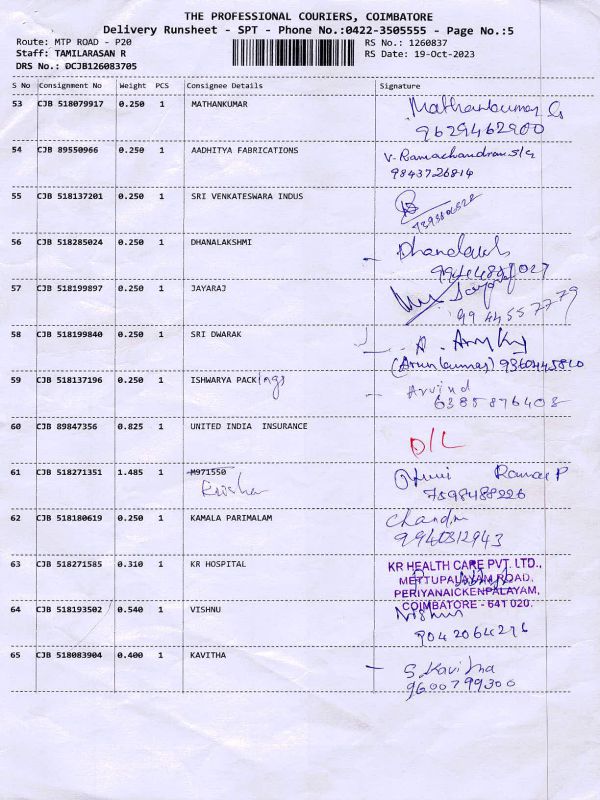 THE PROFESSIONAL COURIERS, COIMBATORE
Delivery Runsheet - SPT - Phone No.:0422-3505555 - Page No.:5
Route: MTP ROAD - P20 RS No.: 1260837
Staff: TAMILARASAN R RS Date: 19-Oct-2023
DRS No.: DCJB126083705
S No Consignment No Weight PCS Consignee Details Signature
53 CJB 518079917 0.250 1 MATHANKUMAR Mathankumar G
9629462900
54 CJB 89550966 0.250 1 AADHITYA FABRICATIONS V. Ramachandran
9843726814
55 CJB 518137201 0.250 1 SRI VENKATESWARA INDUS
56 CJB 518285024 0.250 1 DHANALAKSHMI Dhanalakshmi
57 CJB 518199897 0.250 1 JAYARAJ
99 4455 7779
58 CJB 518199840 0.250 1 SRI DWARAK
(Arunkumar) 9360445810
59 CJB 518137196 0.250 1 ISHWARYA PACKings Arvind
6385876408
60 CJB 89847356 0.825 1 UNITED INDIA INSURANCE D/L
61 CJB 518271351 1.485 1 M971550 Raman P
7598488226
62 CJB 518180619 0.250 1 KAMALA PARIMALAM
9940812943
63 CJB 518271585 0.310 1 KR HOSPITAL KR HEALTH CARE PVT. LTD.,
METTUPALAYAM ROAD,
PERIYANAICKENPALAYAM,
COIMBATORE - 641 020.
64 CJB 518193502 0.540 1 VISHNU Vishnu
9042064276
65 CJB 518083904 0.400 1 KAVITHA S. Kavitha
9600799300